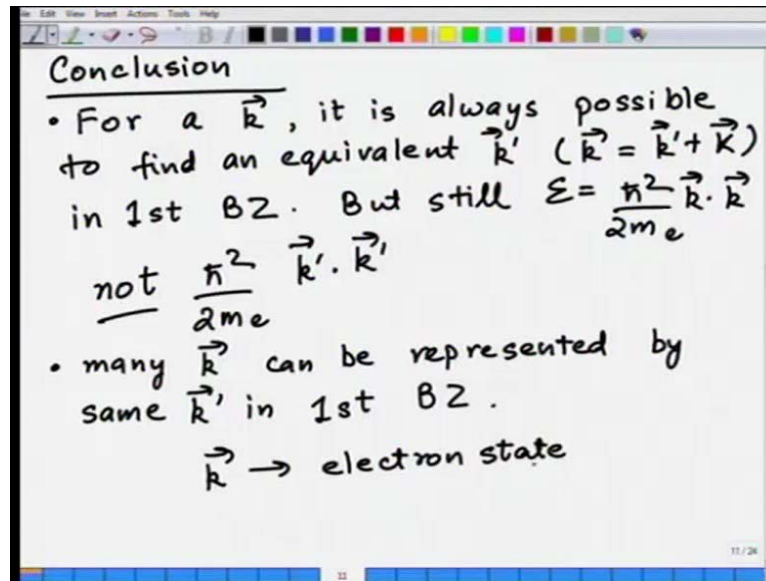 File Edit View Insert Actions Tools Help
Conclusion
• For a $\vec{k}$, it is always possible
to find an equivalent $\vec{k}'$ ($\vec{k} = \vec{k}' + \vec{K}$)
in 1st BZ. But still $\varepsilon = \frac{\hbar^2}{2m_e} \vec{k} \cdot \vec{k}$
not $\frac{\hbar^2}{2m_e} \vec{k}' \cdot \vec{k}'$
• many $\vec{k}$ can be represented by
same $\vec{k}'$ in 1st BZ.
$\vec{k} \rightarrow$ electron state
11/24
11